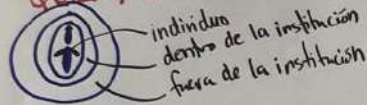 individuo
dentro de la institución
fuera de la institución